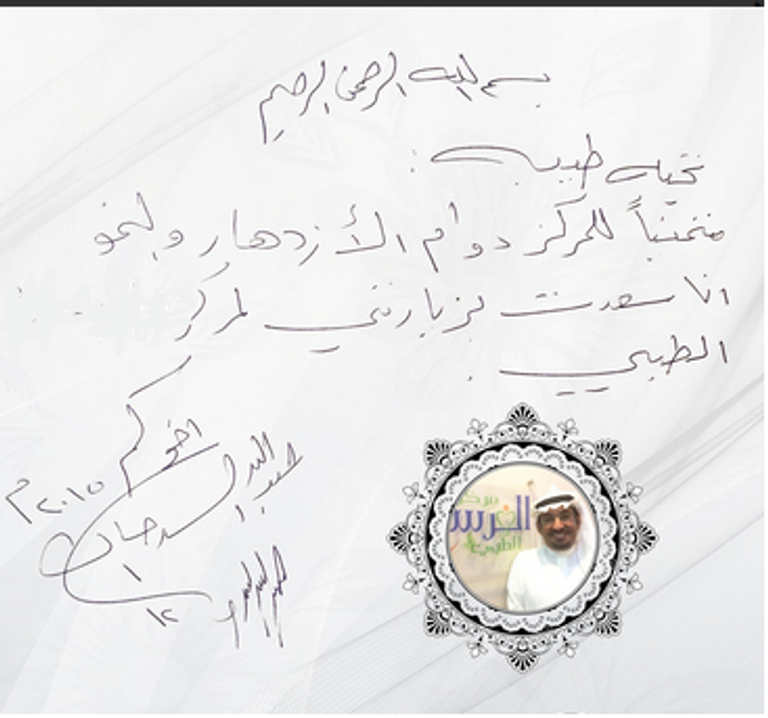 بسم الله الرحمن الرحيم
تحيه طيبه :
متمنياً للمركز دوام الأزدهار والنمو
انا سعدت بزيارتي لمركز
الطبي
اخوكم
عبد الله السدحان
٢٠١٥م
١
١٢
مركز
الفرس
الطبي